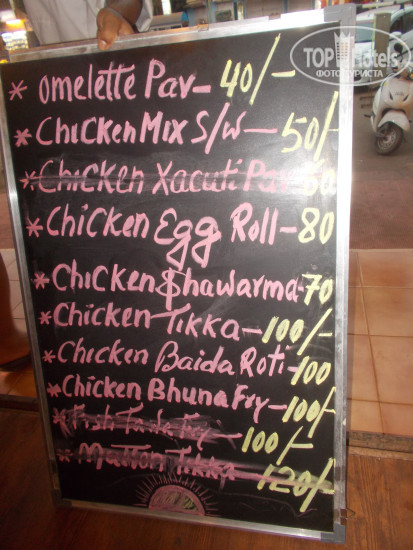 TOPHotels
ФОТО ТУРИСТА
* omelette Pav - 40/-
* Chicken Mix S/W - 50/-
* Chicken Xacuti Pav 60
* Chicken Egg Roll - 80
* Chicken Shawarma - 70
* Chicken Tikka - 100/-
* Chicken Baida Roti - 100
* Chicken Bhuna Fry - 100/-
* Fish Fry - 100/-
* Mutton Tikka - 120/-